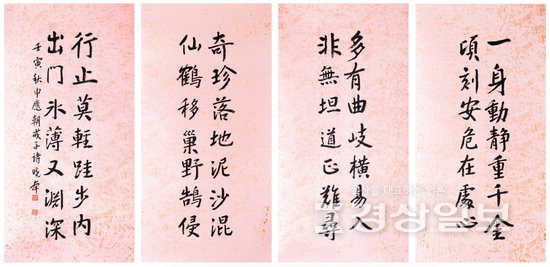 一身動靜重千金
頃刻安危在處心
多有曲岐橫易入
非無坦道正難尋
奇珍落地泥沙混
仙鶴移巢野鵠侵
行止莫輕跬步內
出门氷薄又淵深
壬寅秋申應朝戒子詩
경상일보